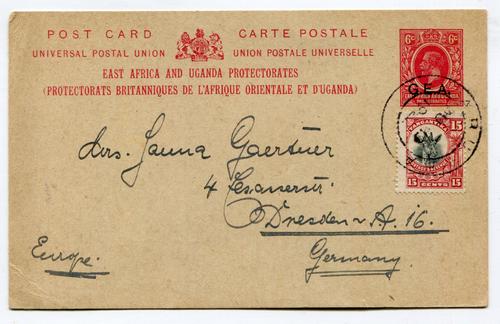 POST CARD CARTE POSTALE
UNIVERSAL POSTAL UNION UNION POSTALE UNIVERSELLE
EAST AFRICA AND UGANDA PROTECTORATES
(PROTECTORATS BRITANNIQUES DE L'AFRIQUE ORIENTALE ET D'UGANDA)
6c 6c
G.E.A.
PROTECTORATES
TANGANYIKA
15 15
15 CENTS 15
Mrs. Janna Gaertner
4
Dresden A. 16.
Germany
Europe